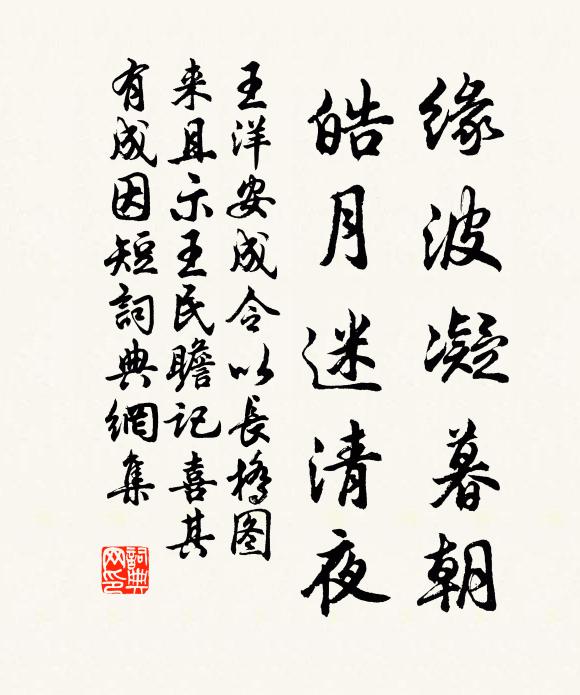 缘波凝暮朝
皓月迷清夜
王洋安成令以長橋图
来且示王民瞻记喜其
有成因短詞典網集
詞典网印